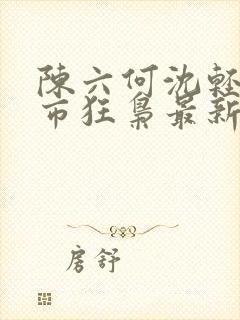 陳六何沈輕
市狂梟最新
房舒